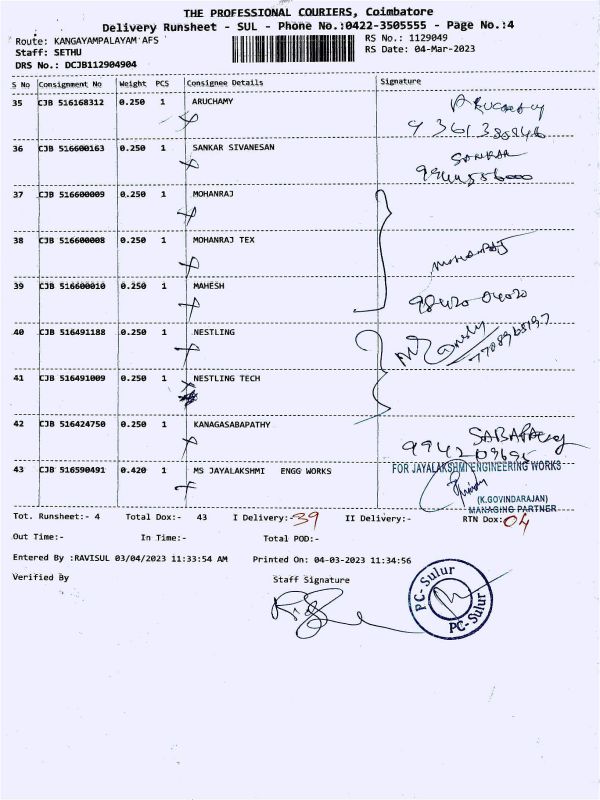 THE PROFESSIONAL COURIERS, Coimbatore
Delivery Runsheet - SUL - Phone No.:0422-3505555 - Page No.:4
Route: KANGAYAMPALAYAM AFS
RS No.: 1129049
Staff: SETHU
RS Date: 04-Mar-2023
DRS No.: DCJB112904904
S No Consignment No Weight PCS Consignee Details Signature
35 CJB 516168312 0.250 1 ARUCHAMY
36 CJB 516600163 0.250 1 SANKAR SIVANESAN
SANKAR
37 CJB 516600009 0.250 1 MOHANRAJ
38 CJB 516600008 0.250 1 MOHANRAJ TEX
MOHANRAJ
39 CJB 516600010 0.250 1 MAHESH
98420 04020
40 CJB 516491188 0.250 1 NESTLING
41 CJB 516491009 0.250 1 NESTLING TECH
42 CJB 516424750 0.250 1 KANAGASABAPATHY
43 CJB 516590491 0.420 1 MS JAYALAKSHMI ENGG WORKS
FOR JAYALAKSHMI ENGINEERING WORKS
(K.GOVINDARAJAN)
MANAGING PARTNER
Tot. Runsheet:- 4 Total Dox:- 43 I Delivery:-39 II Delivery:- RTN Dox:04
Out Time:- In Time:- Total POD:-
Entered By :RAVISUL 03/04/2023 11:33:54 AM Printed On: 04-03-2023 11:34:56
Verified By Staff Signature
PC-Sulur
PC-Sulur